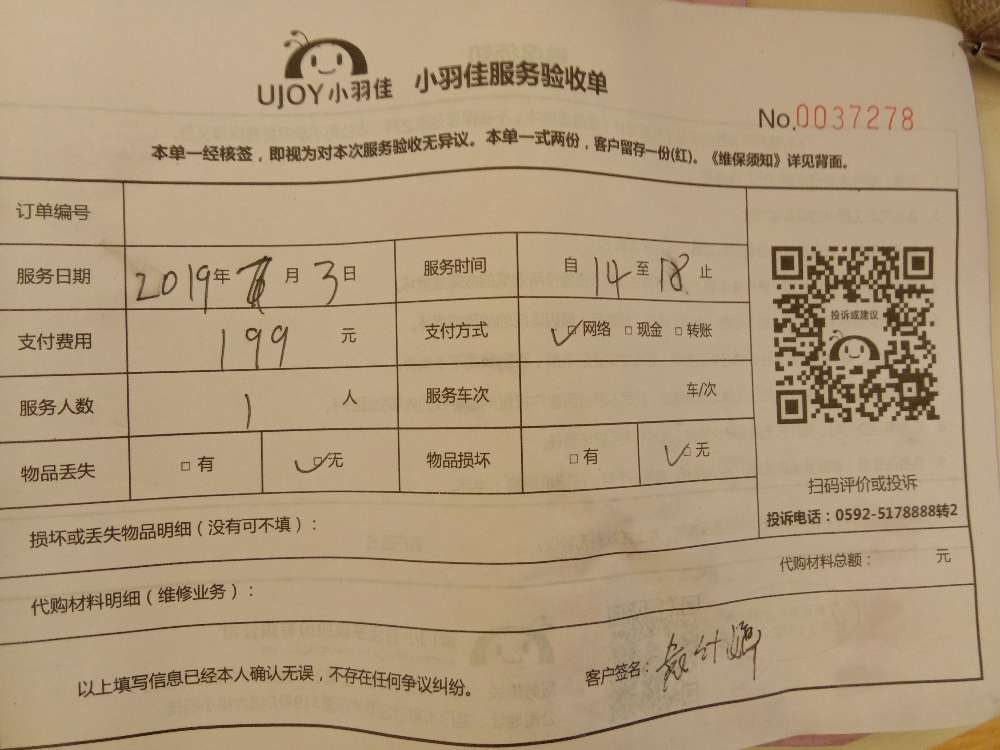 UJOY小羽佳 小羽佳服务验收单
No.0037278
本单一经核签，即视为对本次服务验收无异议。本单一式两份，客户留存一份(红)。《维保须知》详见背面。
订单编号
服务日期 2019年 月3日 服务时间 自14至18止
投诉或建议
支付费用 199 元 支付方式 ✓□网络 □现金 □转账
服务人数 1 人 服务车次 车/次
物品丢失 □有 ✓□无 物品损坏 □有 ✓□无
扫码评价或投诉
投诉电话：0592-5178888转2
损坏或丢失物品明细（没有可不填）：
代购材料明细（维修业务）： 代购材料总额： 元
以上填写信息已经本人确认无误，不存在任何争议纠纷。 客户签名：